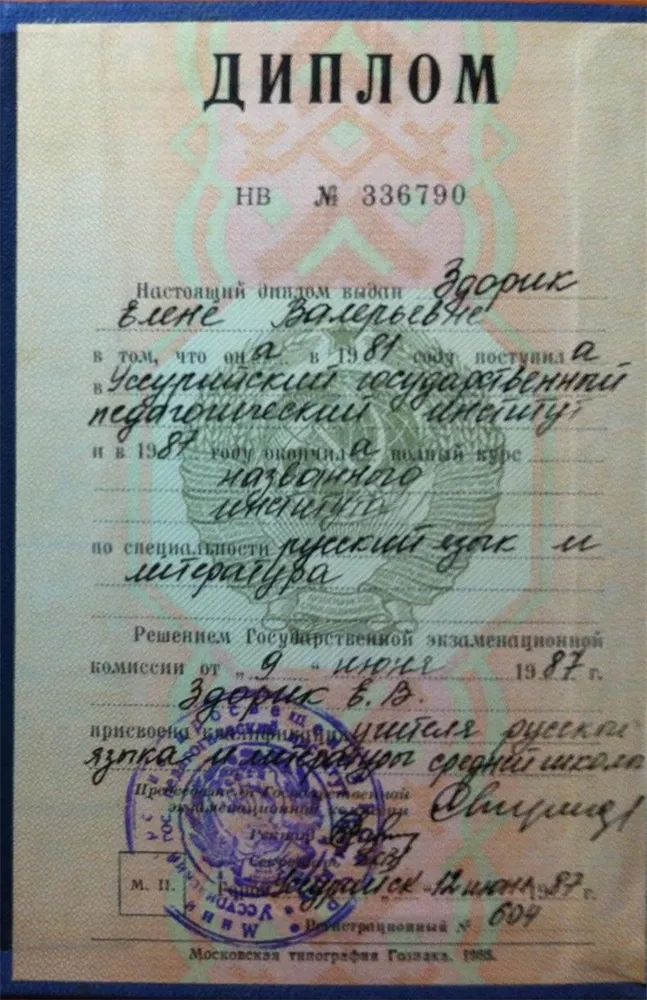 ДИПЛОМ
НВ № 336790
Настоящий диплом выдан Здорик
Елене Валерьевне
в том, что она в 1981 году поступила
в Уссурийский государственный
педагогический институт
и в 1987 году окончила полный курс
названного
института
по специальности русский язык и
литература
Решением Государственной экзаменационной
комиссии от „9" июня 1987 г.
Здорик Е. В.
присвоена квалификация учителя русского
языка и литературы средней школы
Председатель Государственной
экзаменационной комиссии
Ректор
Секретарь
М. П. Город Уссурийск „12" июня 1987 г.
Регистрационный № 604
Московская типография Гознака. 1985.